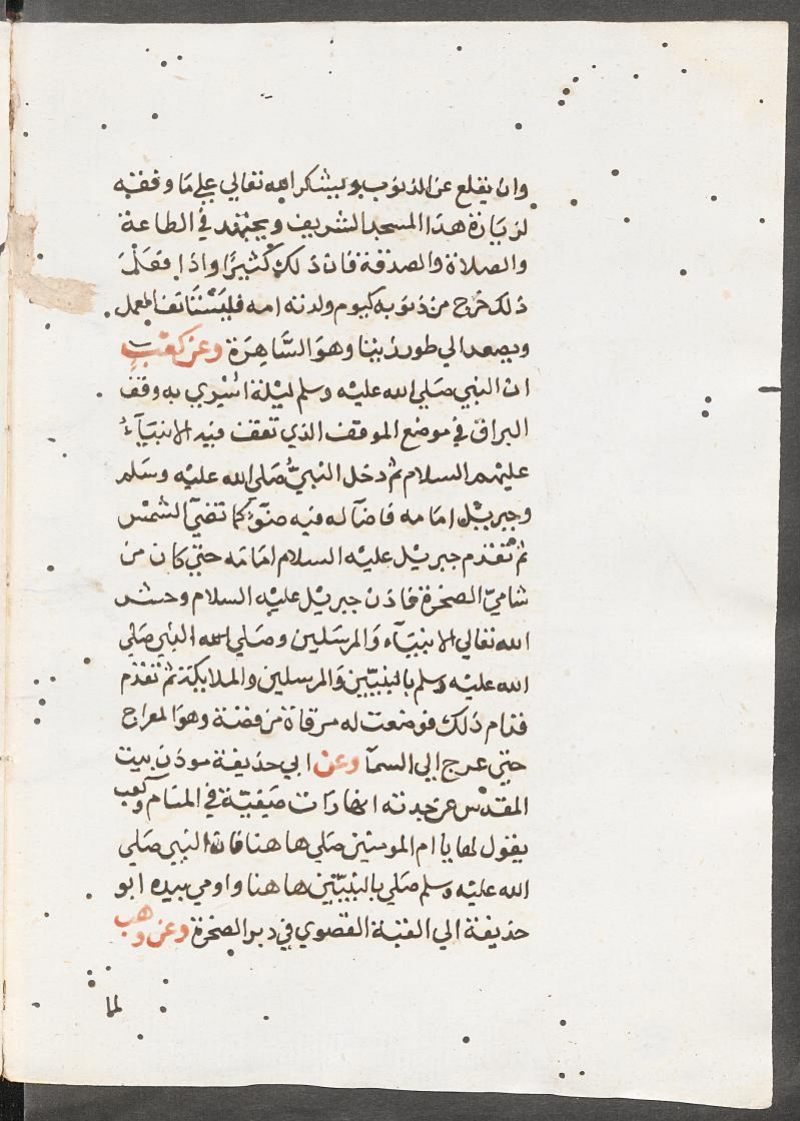 وان يقلع عن الذنوب ويشكر الله تعالي علي ما وفقه
لزيارة هذا المسجد الشريف ويجتهد في الطاعة
والصلاة والصدقة فان ذلك كثيرًا واذا فعل
ذلك خرج من ذنوبه كيوم ولدته امه فليستانف العمل
ويصعد الي طور زيتا وهو السَّاهِرَة وعن كعب
ان النبي صَلي الله عليه وسلم ليلة اسْري به وقف
البراق في موضع الموقف الذي تقف فيه الانبيآءُ
عليهم السلام ثم دخل النبيُّ صَلي الله عليه وسَلم
وجبريل امامه فاضآ له فيه ضوٌ كما تضيٓ الشمس
ثم تقدم جبريل عليه السلام امامه حتي كان من
شاميّ الصخرة فاذن جبريل عليه السلام وحشر
الله تعالي الانبيَآء وَالمرسَلين وصَلي الله النبي صَلي
الله عليه وسلم بالنبيّين وَالمرسلين والملايكة ثم تقدم
قدام ذلك فوضعت له مرقاة من فضة وهوَ المعراج
حتي عرج الي السمآ وعن ابي حذيفة موذن بيت
المقدس عن جدته انها رَات صَفِيّة في المنام وكعب
يقول لها يا ام المومنين صَلي ها هنا فان النبي صَلي
الله عليه وسلم صَلي بالنبيّين ها هنا واومي بيده ابو
حذيفة الي القبة القصوي في دبر الصخرة وعن وهب
لما